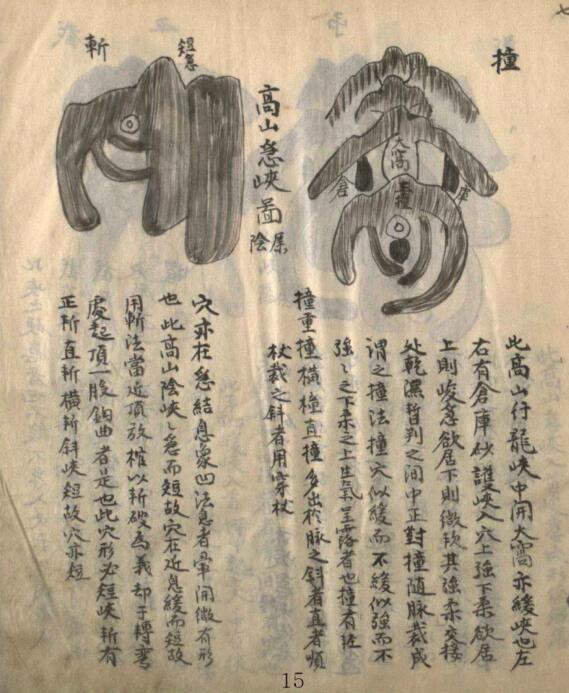 撞
大窩
倉
庫
撞
高山急峽圖
屬陰
短急
斬
此高山行龍峽中開大窩亦緩峽也左
右有倉庫砂護峽入穴上強下柔欲居
上則峻急欲居下則微軟其強柔交接
处乾濕暫判之间中正對撞随脉裁成
谓之撞法撞穴似緩而不緩似強而不
強之下柔之上生氣呈露者也撞有
撞重撞橫撞直撞多出於脉之斜者直者順
杖裁之斜者用穿杖
穴亦在急結息象凹法息者單開微有形
也此高山陰峽急而短故穴在近息緩而短故
用斬法當近頂放棺以斩破為義却于轉弯
處起頂一股鈎曲者是也此穴形必短峽斬有
正斩直斩橫斩斜峽短故穴亦短
15